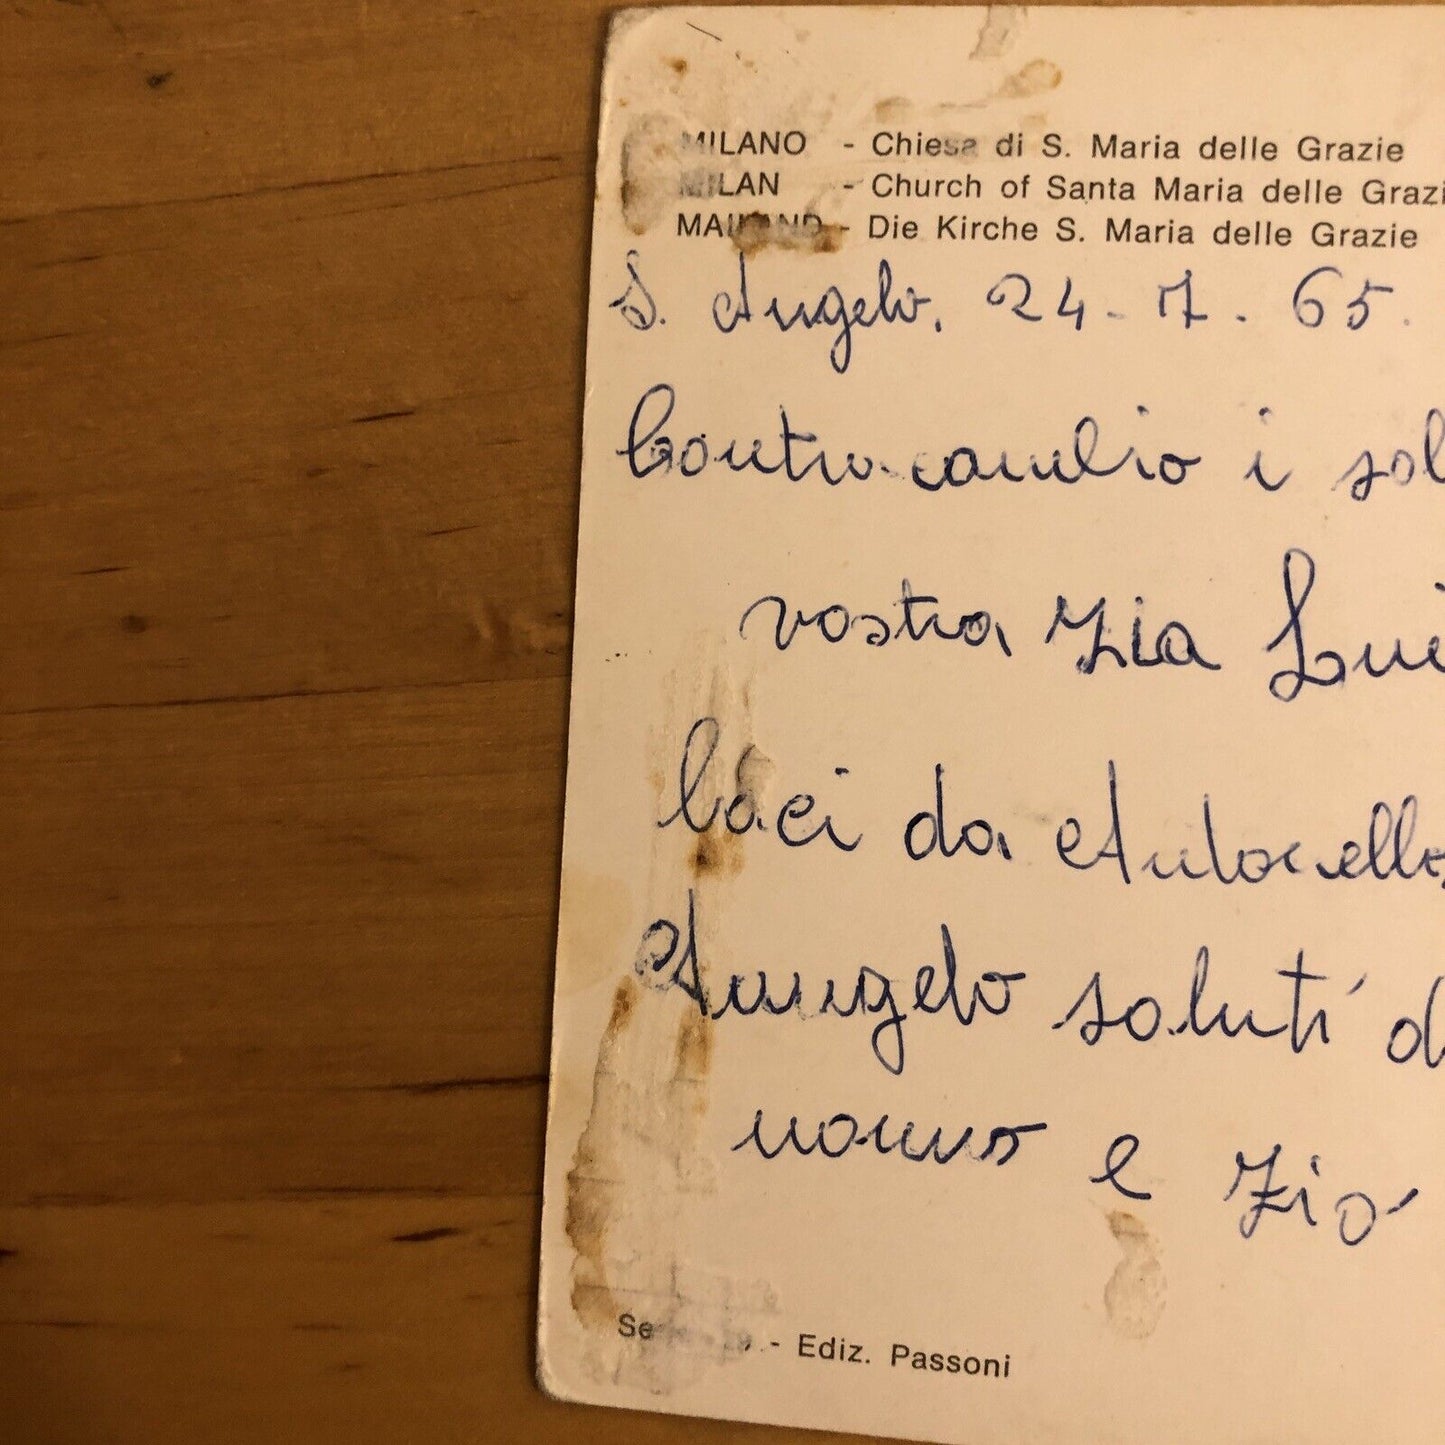 MILANO - Chiesa di S. Maria delle Grazie
MILAN - Church of Santa Maria delle Grazi
MAILAND - Die Kirche S. Maria delle Grazie
S. Angelo, 24-7.65.
Contro cambio i sal
vostra Zia Lui
baci da Antonello
Angelo saluti d
nonno e Zio
- Ediz. Passoni